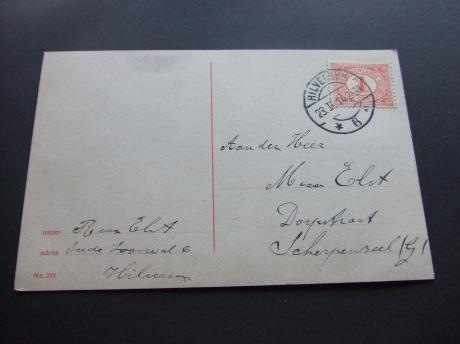 HILVERSUM
23.
6
1
Aan den Heer
M van Elst
Dorpstraat
Scherpenzeel (G)
naam Elst
adres Oude 6
Hilversum
No. 298